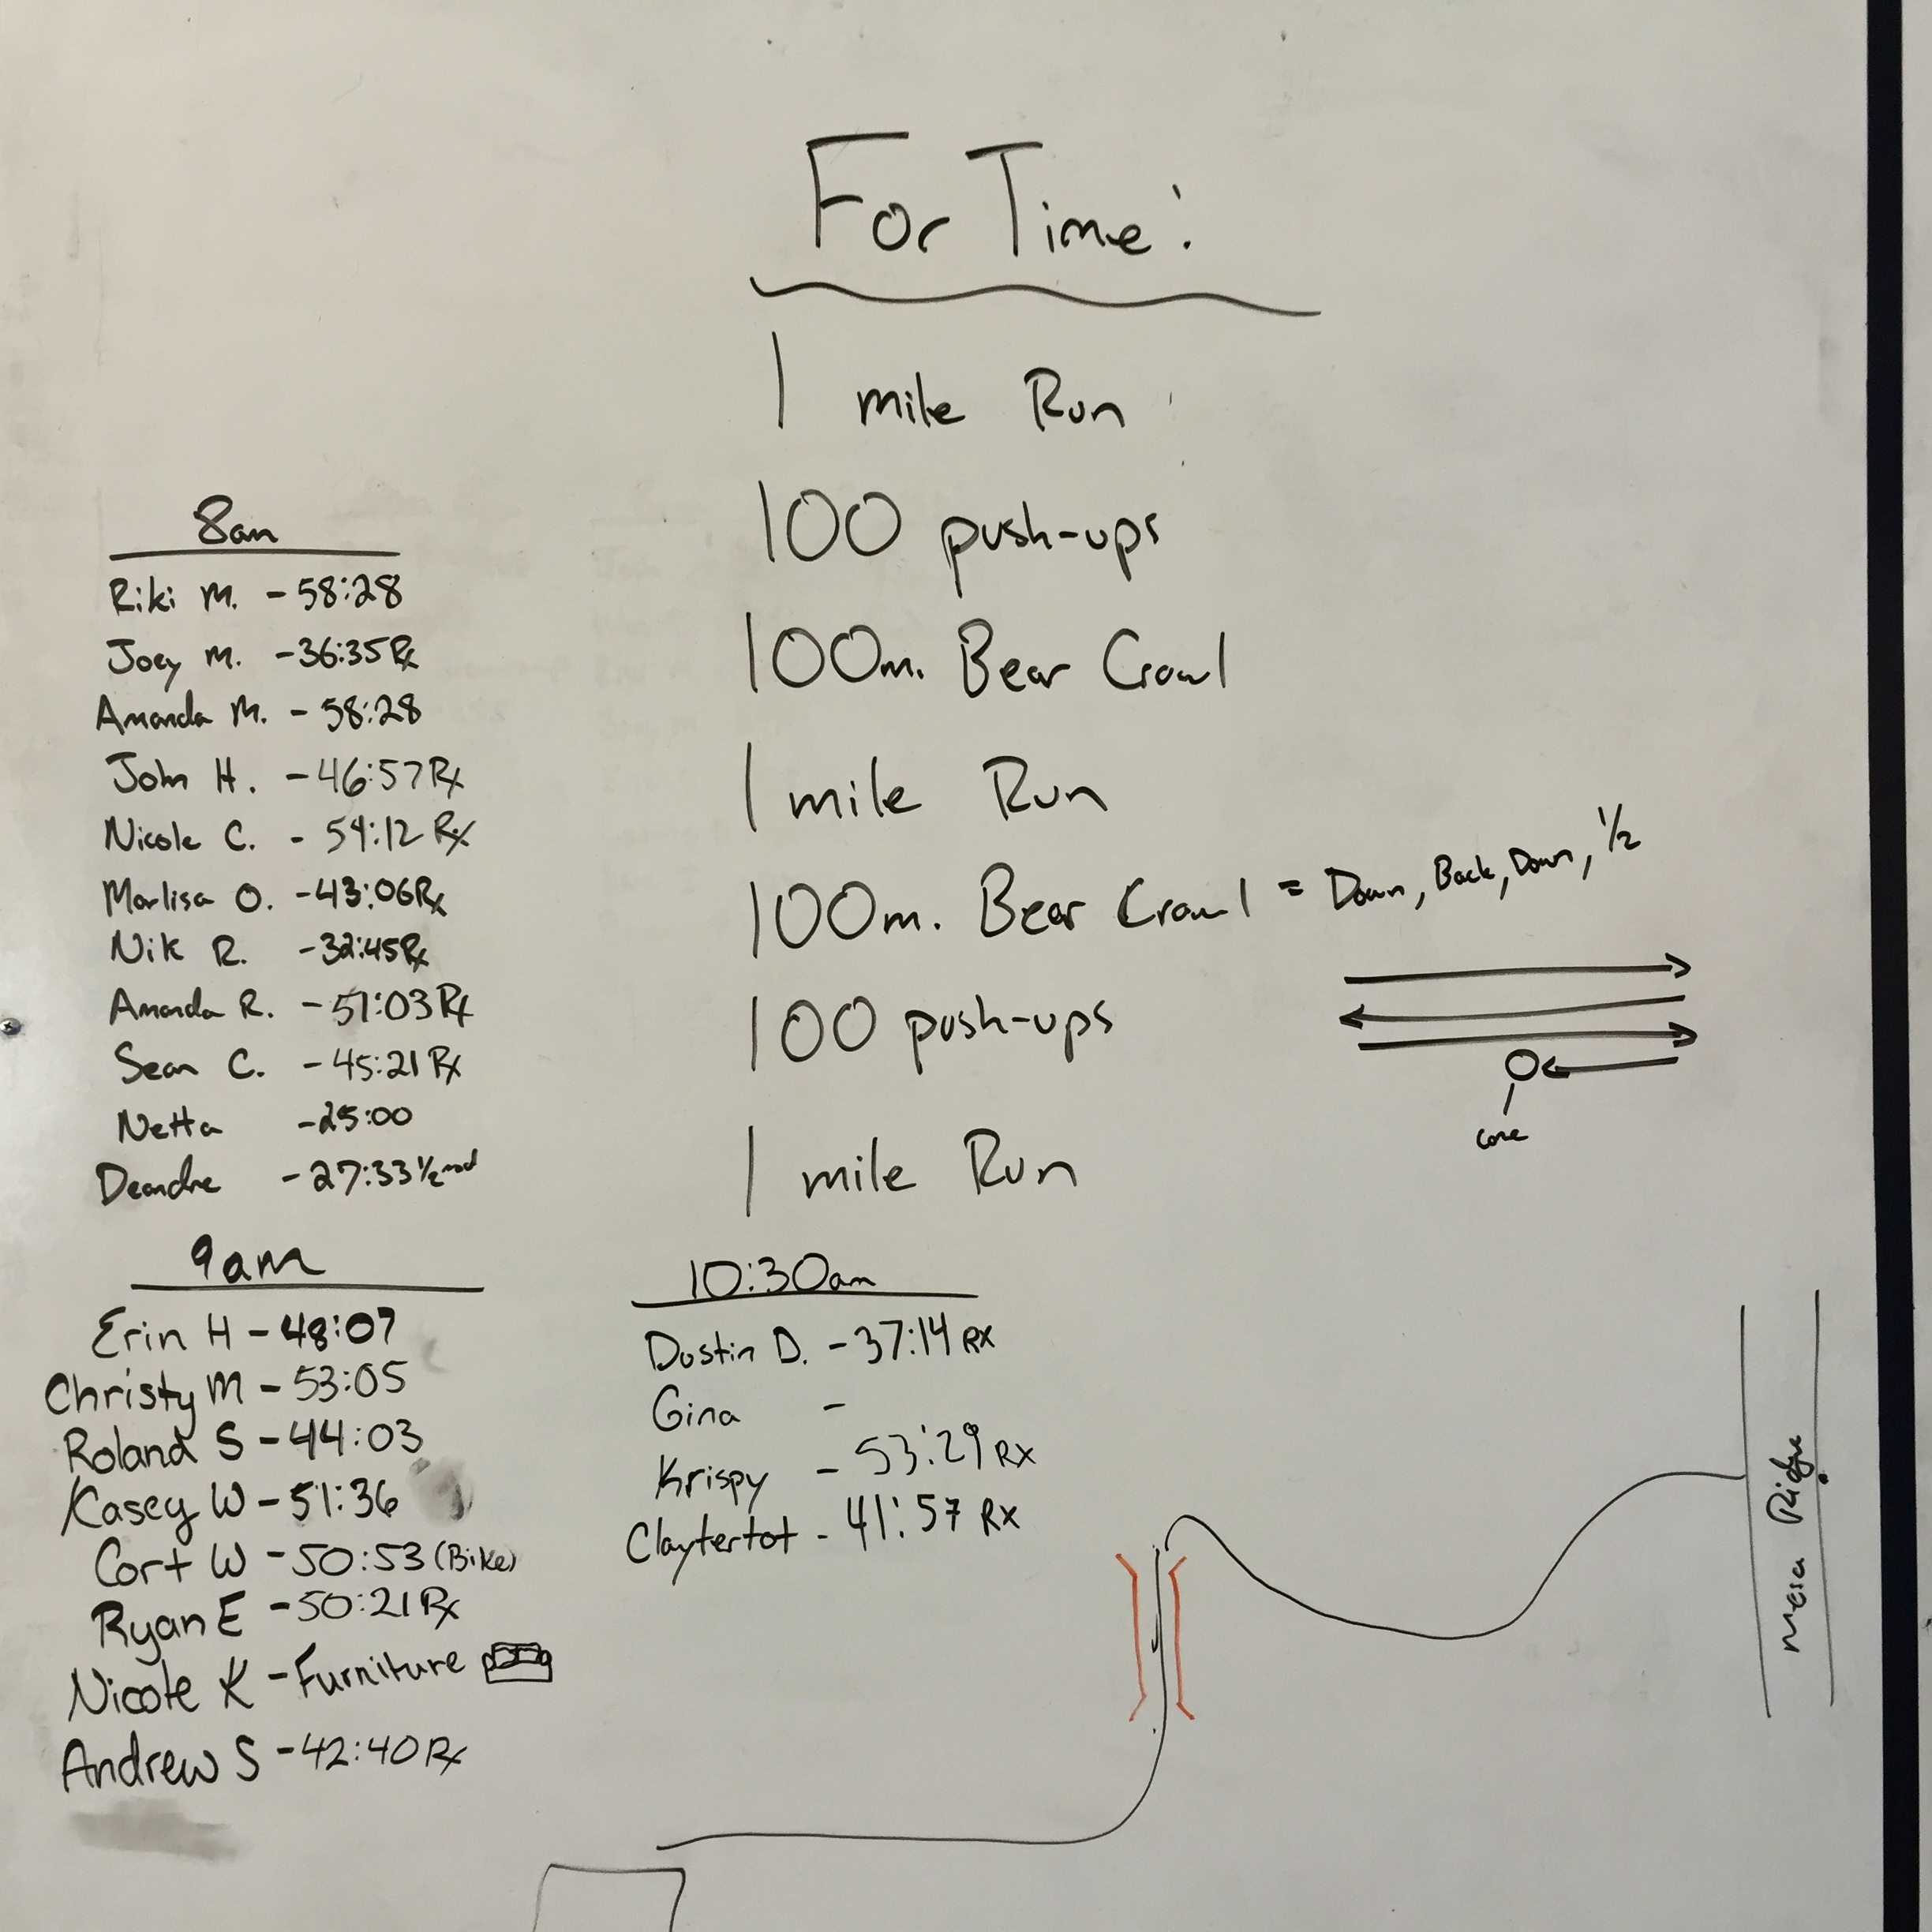 For Time:
1 mile Run
100 push-ups
100m. Bear Crawl
1 mile Run
100m. Bear Crawl = Down, Back, Down, 1/2
cone
100 push-ups
1 mile Run
8am
Riki M. - 58:28
Joey M. - 36:35 Rx
Amanda M. - 58:28
John H. - 46:57 Rx
Nicole C. - 54:12 Rx
Marlisa O. - 43:06 Rx
Nik R. - 32:45 Rx
Amanda R. - 51:03 Rx
Sean C. - 45:21 Rx
Netta - 25:00
Deandre - 27:33 1/2 mod
9am
Erin H - 48:07
Christy M - 53:05
Roland S - 44:03
Kasey W - 51:36
Cort W - 50:53 (Bike)
Ryan E - 50:21 Rx
Nicole K - Furniture
Andrew S - 42:40 Rx
10:30am
Dustin D. - 37:14 RX
Gina -
Krispy - 53:29 RX
Claytertot - 41:57 RX
Mesa Ridge